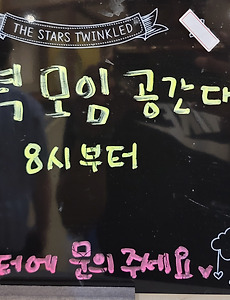 THE STARS TWINKLED
모임 공간대
8시부터
터에 문의 주세요